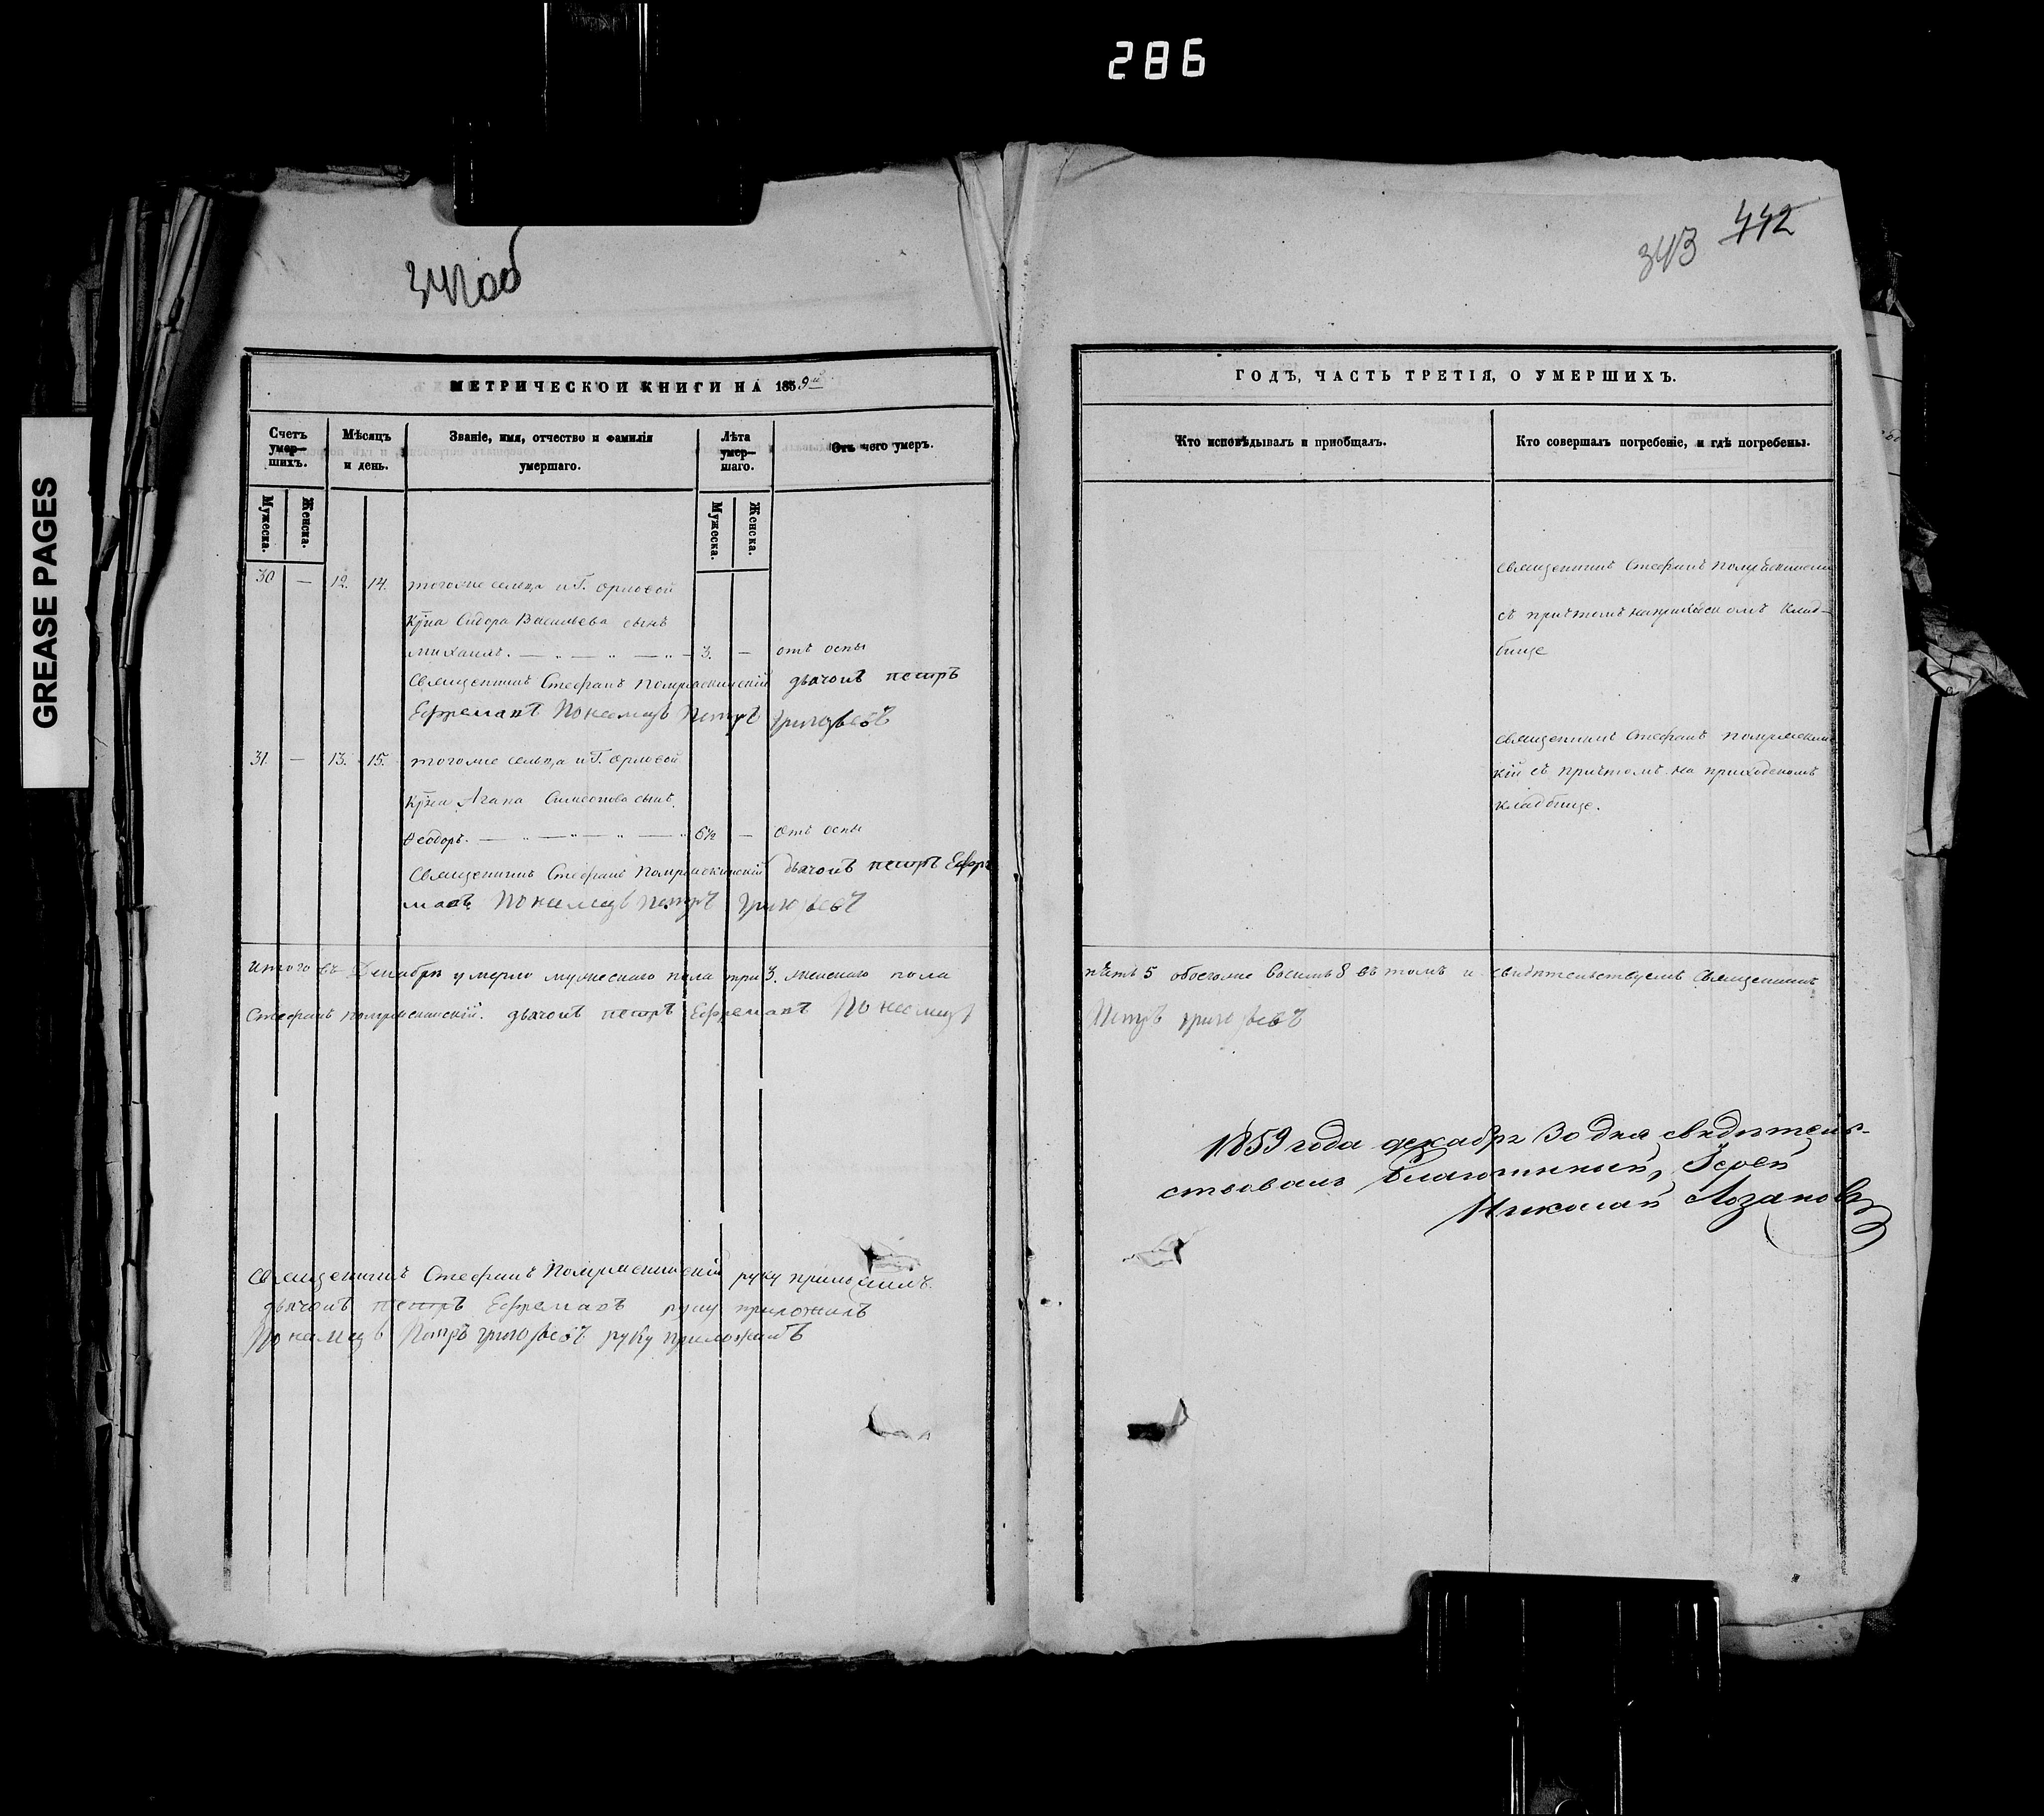 286
GREASE PAGES
342об
343 442
МЕТРИЧЕСКОИ КНИГИ НА 1859й
ГОДЪ, ЧАСТЬ ТРЕТІЯ, О УМЕРШИХЪ.
Счетъ умер-шихъ.
Мѣсяцъ и день.
Званіе, имя, отчество и фамилія умершаго.
Лѣта умер-шаго.
Отъ чего умеръ.
Кто исповѣдывалъ и пріобщалъ.
Кто совершалъ погребеніе, и гдѣ погребены.
Мужеска.
Женска.
Мужеска.
Женска.
30 — 12. 14. тогоже сельца и Г. Орловой
Кр̃на Сидора Васильева сынъ
Михаилъ. — „ — „ — „ — 3. — отъ оспы
Священникъ Стефанъ дьячокъ петръ
Ефремовъ Пономарь Петръ григорьевъ
священникъ Стефанъ
съ причтомъ на приходскомъ клад-
бище
31. — 13. 15. тогоже сельца и Г. Орловой
Кр̃на Агапа Симеонова сынъ
Ѳеодоръ. — „ — „ — „ — „ 6½ — отъ оспы
Священникъ Стефанъ дьячокъ петръ Ефре
мовъ Пономарь Петръ григорьевъ
священникъ Стефанъ
кій съ причтомъ на приходскомъ
кладбище.
Итого въ Декабрѣ умерло мужескаго пола три 3. женскаго пола
пѣть 5 обоегоже восимь 8 въ томъ и свидѣтельствуемъ Священникъ
Стефанъ дьячокъ петръ Ефремовъ Пономарь
Петръ григорьевъ
1859 года декабря 30 дня свидѣтель-
ствовалъ Благочинный, Іерей
Николай Лозановъ
Священникъ Стефанъ руку приложилъ.
дьячокъ петръ Ефремовъ руку приложилъ
Пономарь Петръ григорьевъ руку приложилъ